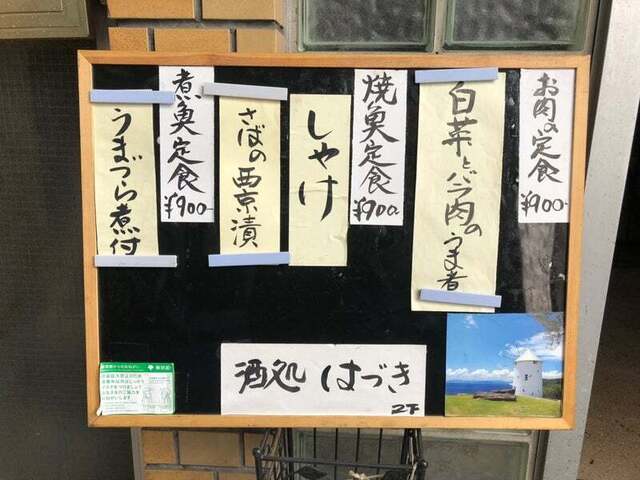 お肉の定食
¥900
白菜とバラ肉のうま煮
焼魚定食
¥900
しゃけ
さばの西京漬
煮魚定食
¥900
うまづら煮付
酒処 はづき
2F